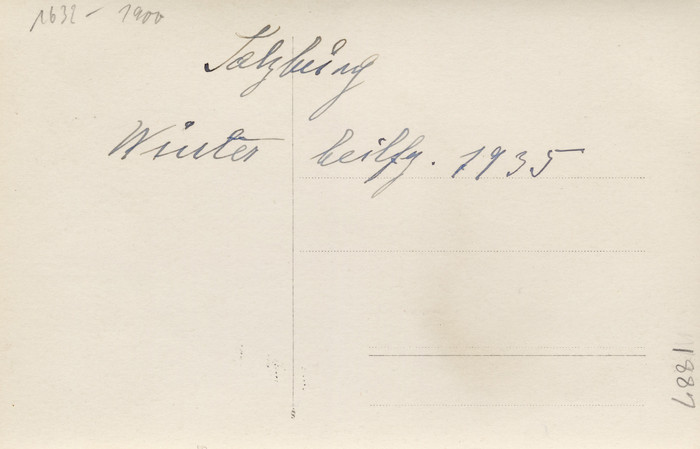 1632 - 1900
Salzburg
Winter 1935
1887